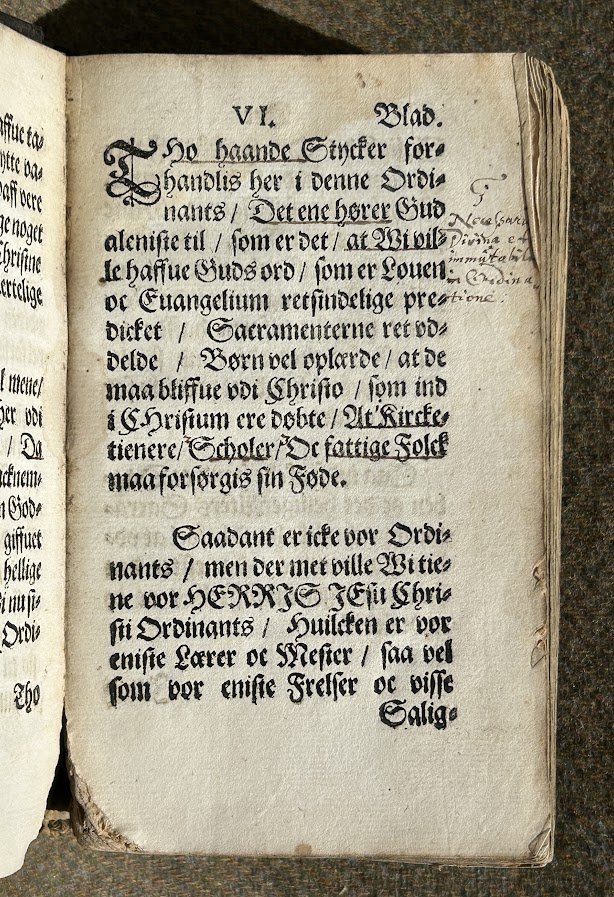 affue ta-
ytte va-
aff vere
ge noget
Christine
ertelige
l mene/
her vdi
/ Da
cknem-
n God-
giffuet
hellige
i nu si-
Ordi-
Tho
VI. Blad.
THo haande Stycker for-
handlis her i denne Ordi-
nants / Det ene hører Gud
aleniste til / som er det / at Wi vil-
le haffue Guds ord / som er Louen
oc Euangelium retsindelige pre-
dicket / Sacramenterne ret vd-
delde / Børn vel oplærde / at de
maa bliffue vdi Christo / som ind
i CHristum ere døbte / At Kircke-
tienere / Scholer / Oc fattige Folck
maa forsørgis sin Føde.
Necessaria
Divina et
immutabilia
in Ordina-
tione.
Saadant er icke vor Ordi-
nants / men der met ville Wi tie-
ne vor HERRIS JEsu Chri-
sti Ordinants / Huilcken er vor
eniste Lærer oc Mester / saa vel
som vor eniste Frelser oc visse
Salig-